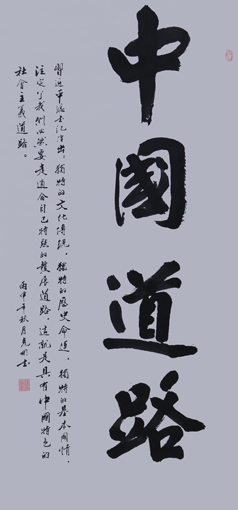 中國道路
習近平總書记指出，獨特的文化傳統，獨特的歷史命運，獨特的基本國情，
注定了我們必然要走適合自己特點的發展道路，這就是具有中國特色的
社會主義道路。
丙申年秋月